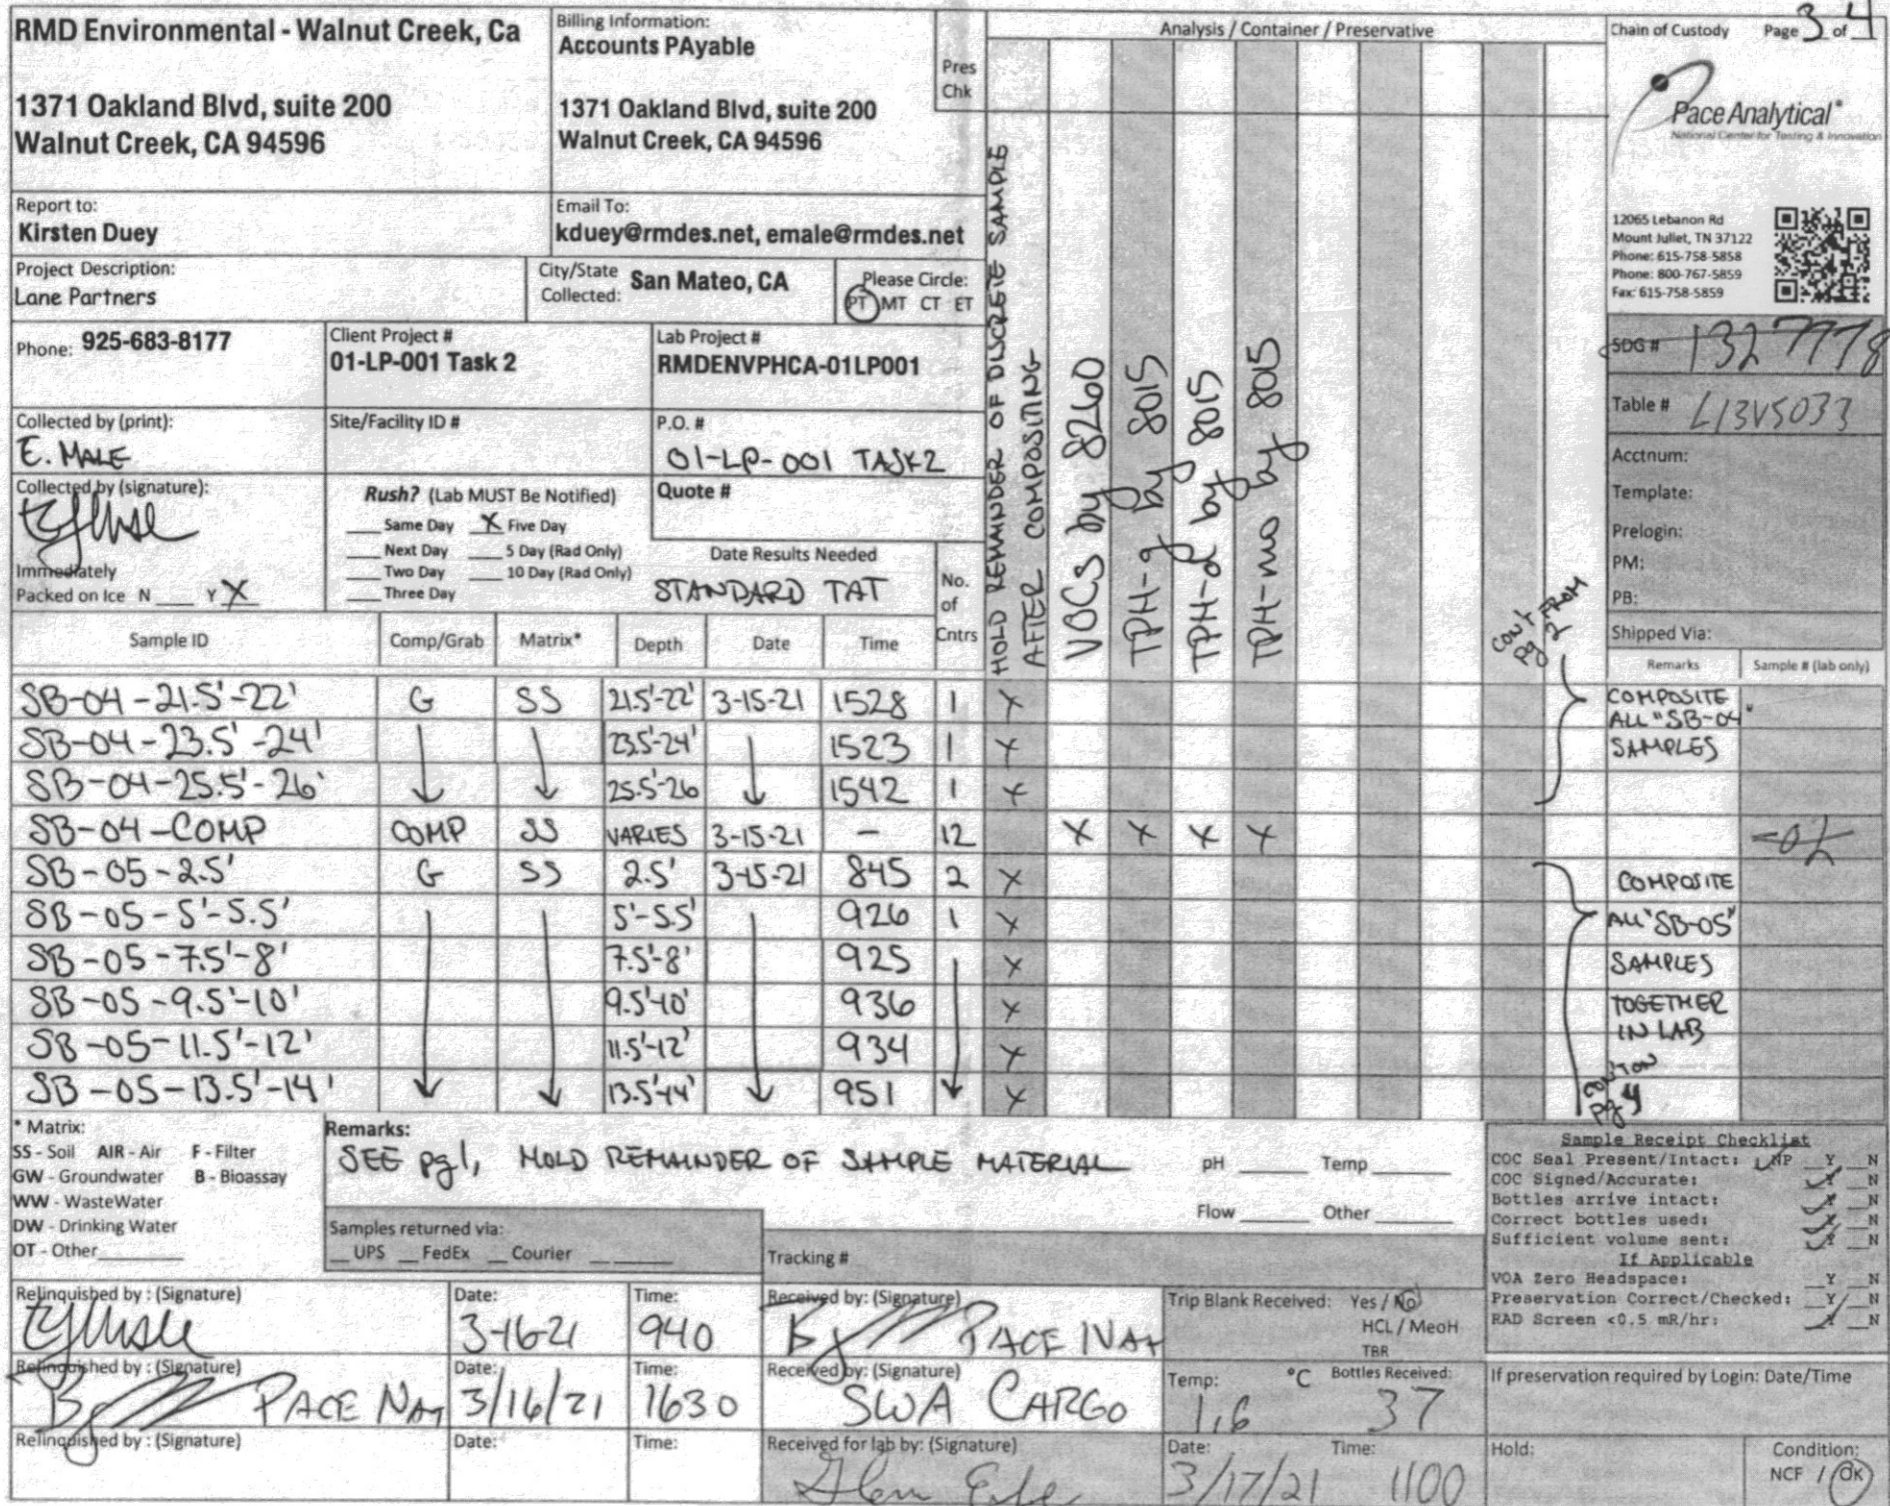 RMD Environmental - Walnut Creek, Ca
1371 Oakland Blvd, suite 200
Walnut Creek, CA 94596
Billing Information:
Accounts PAyable
1371 Oakland Blvd, suite 200
Walnut Creek, CA 94596
Pres
Chk
Analysis / Container / Preservative
Chain of Custody Page 3 of 4
Pace Analytical®
National Center for Testing & Innovation
12065 Lebanon Rd
Mount Juliet, TN 37122
Phone: 615-758-5858
Phone: 800-767-5859
Fax: 615-758-5859
Report to:
Kirsten Duey
Email To:
kduey@rmdes.net, emale@rmdes.net
Project Description:
Lane Partners
City/State
Collected: San Mateo, CA
Please Circle:
PT MT CT ET
Phone: 925-683-8177
Client Project #
01-LP-001 Task 2
Lab Project #
RMDENVPHCA-01LP001
SDG # 1327778
Table #
Acctnum:
Template:
Prelogin:
PM:
PB:
Shipped Via:
Collected by (print):
E. MALE
Site/Facility ID #
P.O. #
01-LP-001 TASK2
Collected by (signature):
Rush? (Lab MUST Be Notified)
___ Same Day X Five Day
___ Next Day ___ 5 Day (Rad Only)
___ Two Day ___ 10 Day (Rad Only)
___ Three Day
Quote #
Date Results Needed
STANDARD TAT
Immediately
Packed on Ice N ___ Y X
No.
of
Cntrs
HOLD REMAINDER OF DISCRETE SAMPLE
AFTER COMPOSITING
VOCs by 8260
TPH-g by 8015
TPH-d by 8015
TPH-mo by 8015
CONT FROM
pg 2
Sample ID Comp/Grab Matrix* Depth Date Time Remarks Sample # (lab only)
SB-04-21.5'-22' G SS 21.5'-22' 3-15-21 1528 1 X COMPOSITE
ALL "SB-04"
SB-04-23.5'-24' 23.5'-24' 1523 1 X SAMPLES
SB-04-25.5'-26' 25.5'-26 1542 1 X
SB-04-COMP COMP SS VARIES 3-15-21 - 12 X X X X
SB-05-2.5' G SS 2.5' 3-15-21 845 2 X COMPOSITE
SB-05-5'-5.5' 5'-5.5' 926 1 X ALL "SB-05"
SB-05-7.5'-8' 7.5'-8' 925 X SAMPLES
SB-05-9.5'-10' 9.5'-10' 936 X TOGETHER
IN LAB
SB-05-11.5'-12' 11.5'-12' 934 X
SB-05-13.5'-14' 13.5'-14' 951 X
CONT ON
pg 4
* Matrix:
SS - Soil AIR - Air F - Filter
GW - Groundwater B - Bioassay
WW - WasteWater
DW - Drinking Water
OT - Other
Remarks:
SEE pg 1, HOLD REMAINDER OF SAMPLE MATERIAL
pH ___ Temp ___
Flow ___ Other ___
Samples returned via:
__ UPS __ FedEx __ Courier ______
Tracking #
Sample Receipt Checklist
COC Seal Present/Intact: NP Y N
COC Signed/Accurate: Y N
Bottles arrive intact: Y N
Correct bottles used: Y N
Sufficient volume sent: Y N
If Applicable
VOA Zero Headspace: Y N
Preservation Correct/Checked: Y N
RAD Screen <0.5 mR/hr: Y N
Relinquished by : (Signature)
Date:
3-16-21
Time:
940
Received by: (Signature)
PACE
Trip Blank Received: Yes / No
HCL / MeoH
TBR
Relinquished by : (Signature)
PACE NAT
Date:
3/16/21
Time:
1630
Received by: (Signature)
SWA CARGO
Temp: °C
1.6
Bottles Received:
37
If preservation required by Login: Date/Time
Relinquished by : (Signature)
Date:
Time:
Received for lab by: (Signature)
Date:
3/17/21
Time:
1100
Hold:
Condition:
NCF / OK